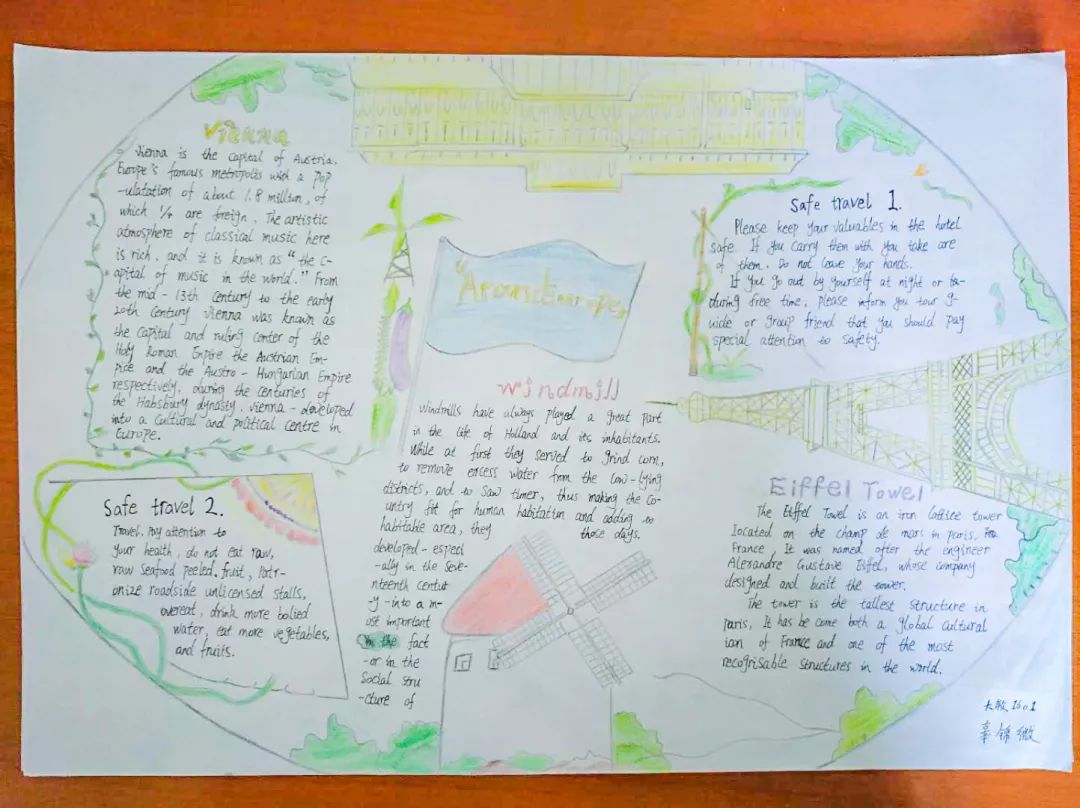 Vienna
Vienna is the capital of Austria.
Europe's famous metropolis with a pop
-ulatation of about 1.8 million, of
which 1/4 are foreign. The artistic
atmosphere of classical music here
is rich, and it is known as "the c-
apital of music in the world." From
the mid-13th century to the early
20th century Vienna was known as
the capital and ruling center of the
Holy Roman Empire the Austrian Em-
pire and the Austro-Hungarian Empire
respectively. during the centuries of
the Habsbury dynasty. Vienna-developed
into a cultural and political centre in
Europe.
"Around Europe"
Safe travel 1.
Please keep your valuables in the hotel
safe. If you carry them with you take are
of them. Do not leave your hands.
If you go out by yourself at night or
during free time, please inform you tour g-
uide or group friend that you should pay
special attention to safety.
windmill
Windmills have always played a great part
in the life of Holland and its inhabitants.
While at first they served to grind corn,
to remove excess water from the low-lying
districts, and to saw timer, thus making the co-
untry fit for human habitation and adding to
habitable area, they those days.
developed-especi
-ally in the Seve-
nteenth centur
y-into a m-
ost important
in the fact
-or in the
Social stru
-cture of
Safe travel 2.
Travel, Pay attention to
your health, do not eat raw,
raw seafood peeled. fruit, Patr-
onize roadside unlicensed stalls,
overeat, drink more bolied
water, eat more vegetables,
and fruits.
Eiffel Towel
The Eiffel Towel is an iron lattice tower
Located on the champ de mars in paris,
France, It was named after the engineer
Alexandre Gustave Eiffel, whose company
designed and built the tower.
The tower is the tallest structure in
paris, It has be come both a global cultural
ian of France and one of the most
recognisable structures in the world.
1601
辜锦微